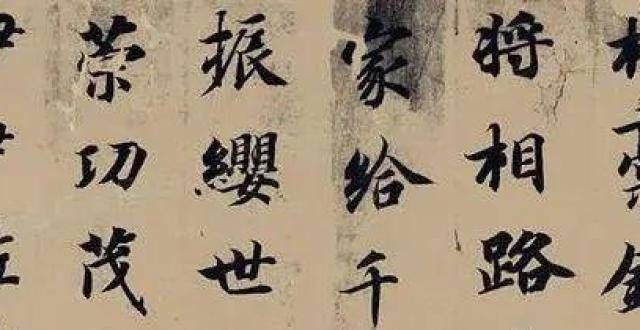 将相路
家給千
振纓世
策功茂